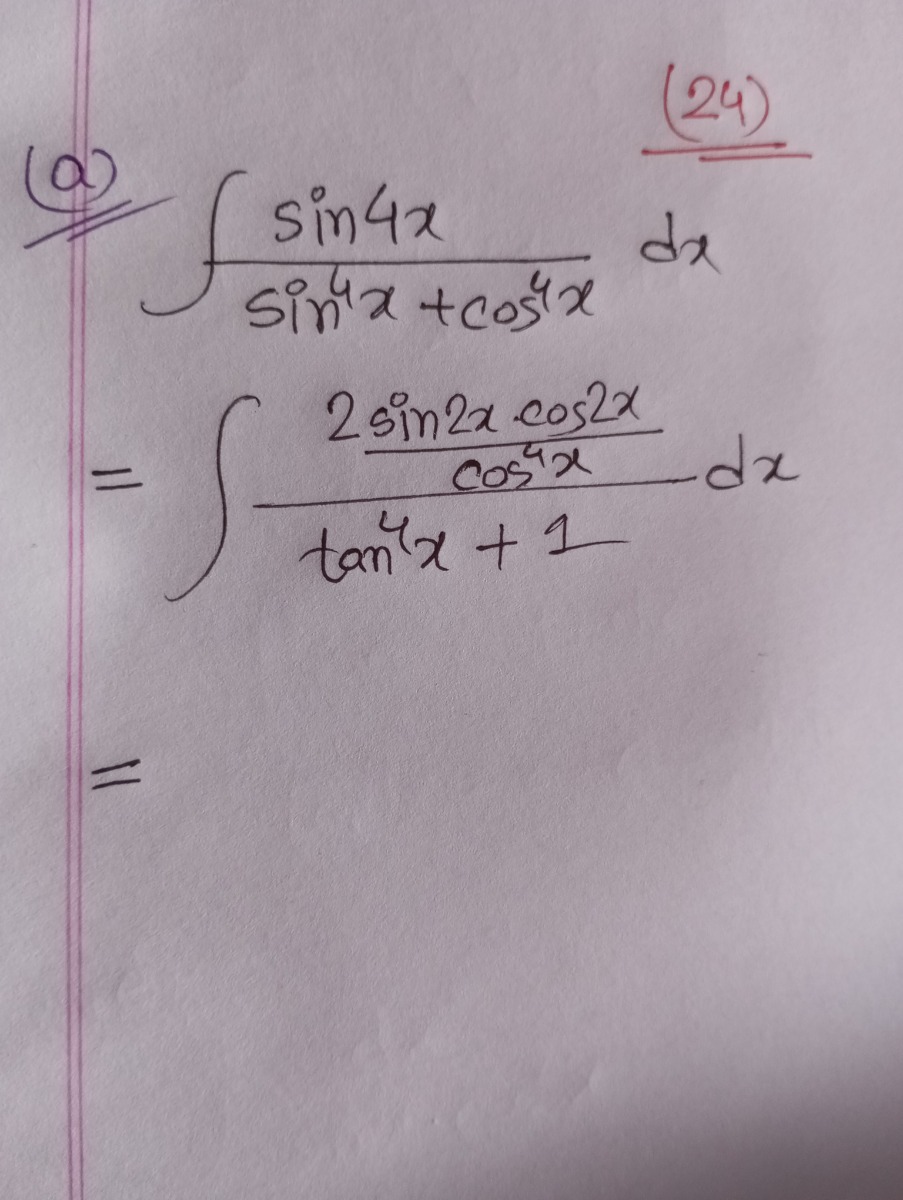 (24)
(a) ∫ sin4x / (sin⁴x + cos⁴x) dx
= ∫ (2 sin2x · cos2x / cos⁴x) / (tan⁴x + 1) dx
=